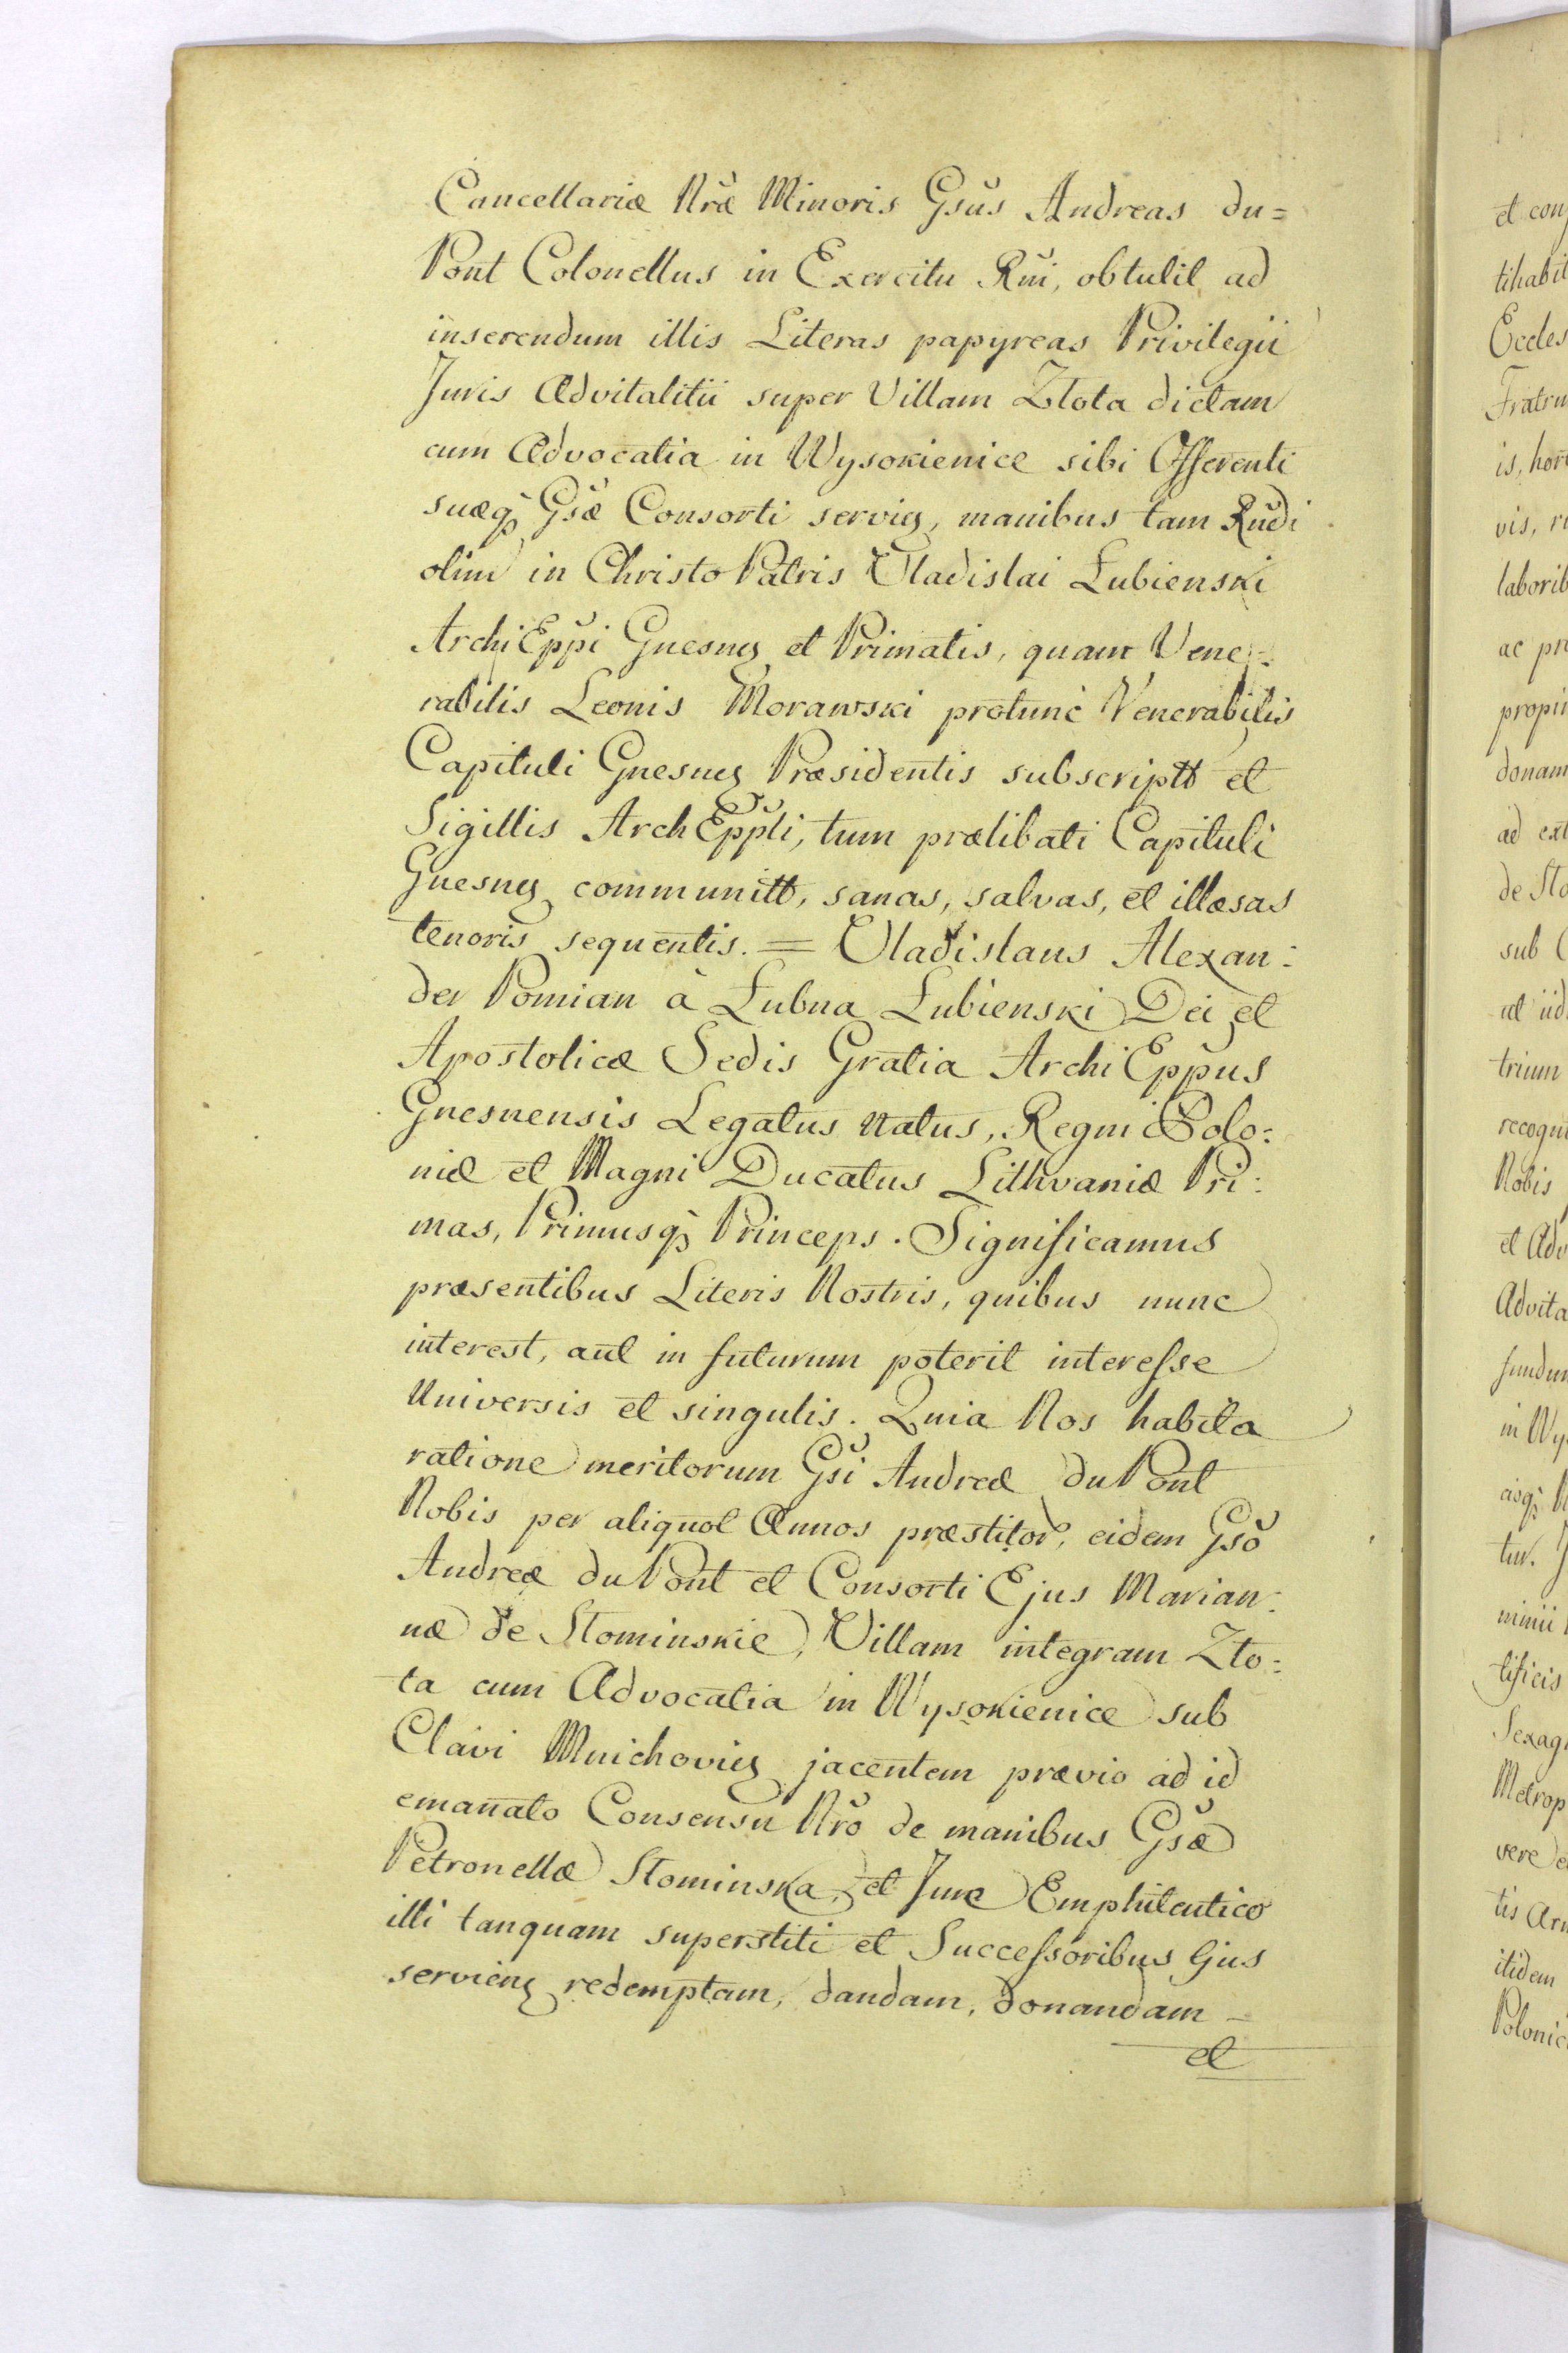 Cancellariæ Nræ Minoris Gsus Andreas du=
Pont Colonellus in Exercitu Rni, obtulit ad
inserendum illis Literas papyreas Privilegii
Juris Advitalitii super Villam Złota dictam
cum Advocatia in Wysokienice sibi Offerenti
suæq Gsæ Consorti servien, manibus tam Rndi
olim in Christo Patris Vladislai Łubienski
ArchiEppi Gnesnen et Primatis, quam Vene=
rabilis Leonis Morawski protunc Venerabilis
Capituli Gnesnen Præsidentis subscriptt et
Sigillis ArchEppli, tum prælibati Capituli
Gnesnen communitt, sanas, salvas, et illæsas
tenoris sequentis. = Vladislaus Alexan:
der Pomian à Łubna Łubienski Dei et
Apostolicæ Sedis Gratia ArchiEppus
Gnesnensis Legatus Natus, Regni Polo:
niæ et Magni Ducatus Lithvaniæ Pri:
mas, Primusq Princeps. Significamus
præsentibus Literis Nostris, quibus nunc
interest, aut in futurum poterit interesse
Universis et singulis. Quia Nos habita
ratione meritorum Gsi Andreæ du Pont
Nobis per aliquot Annos præstitor, eidem Gso
Andreæ du Pont et Consorti Ejus Marian:
næ de Słominskie, Villam integram Zło:
ta cum Advocatia in Wysokienice sub
Clavi Mnichovien jacentem prævio ad id
emanato Consensu Nro de manibus Gsæ
Petronellæ Słominska, et Jure Emphiteutico
illi tanquam superstiti et Successoribus Ejus
servien redemptam, dandam, donandam
et
et con
tihabit
Eccles
Fratru
is, hor
vis, r
laborib
ac pr
propi
donam
ad ext
de Sło
sub
ut iid
trium
recogn
Nobis
et Adv
Advita
fundu
in Wy
eisq
tur. J
minii
tificis
Sexag
Metrop
vere
tis Ar
itidem
Polonic